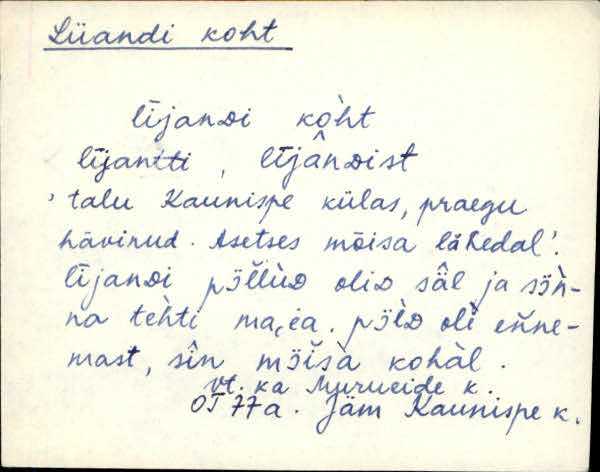 Lüandi koht
lījanDi kòht
lījantti, lījânDist
' talu Kaunispe külas, praegu
hävinud. Asetses mõisa lähedal'.
lījanDi pȭllùD oliD sä̂l ja sȭǹ-
na tèhti ma,ea. pȭlD olì eǹne-
mast, sîn mȭisà kohàl.
vt. ka Murueide k.
OT 77a. Jäm Kaunispe k.